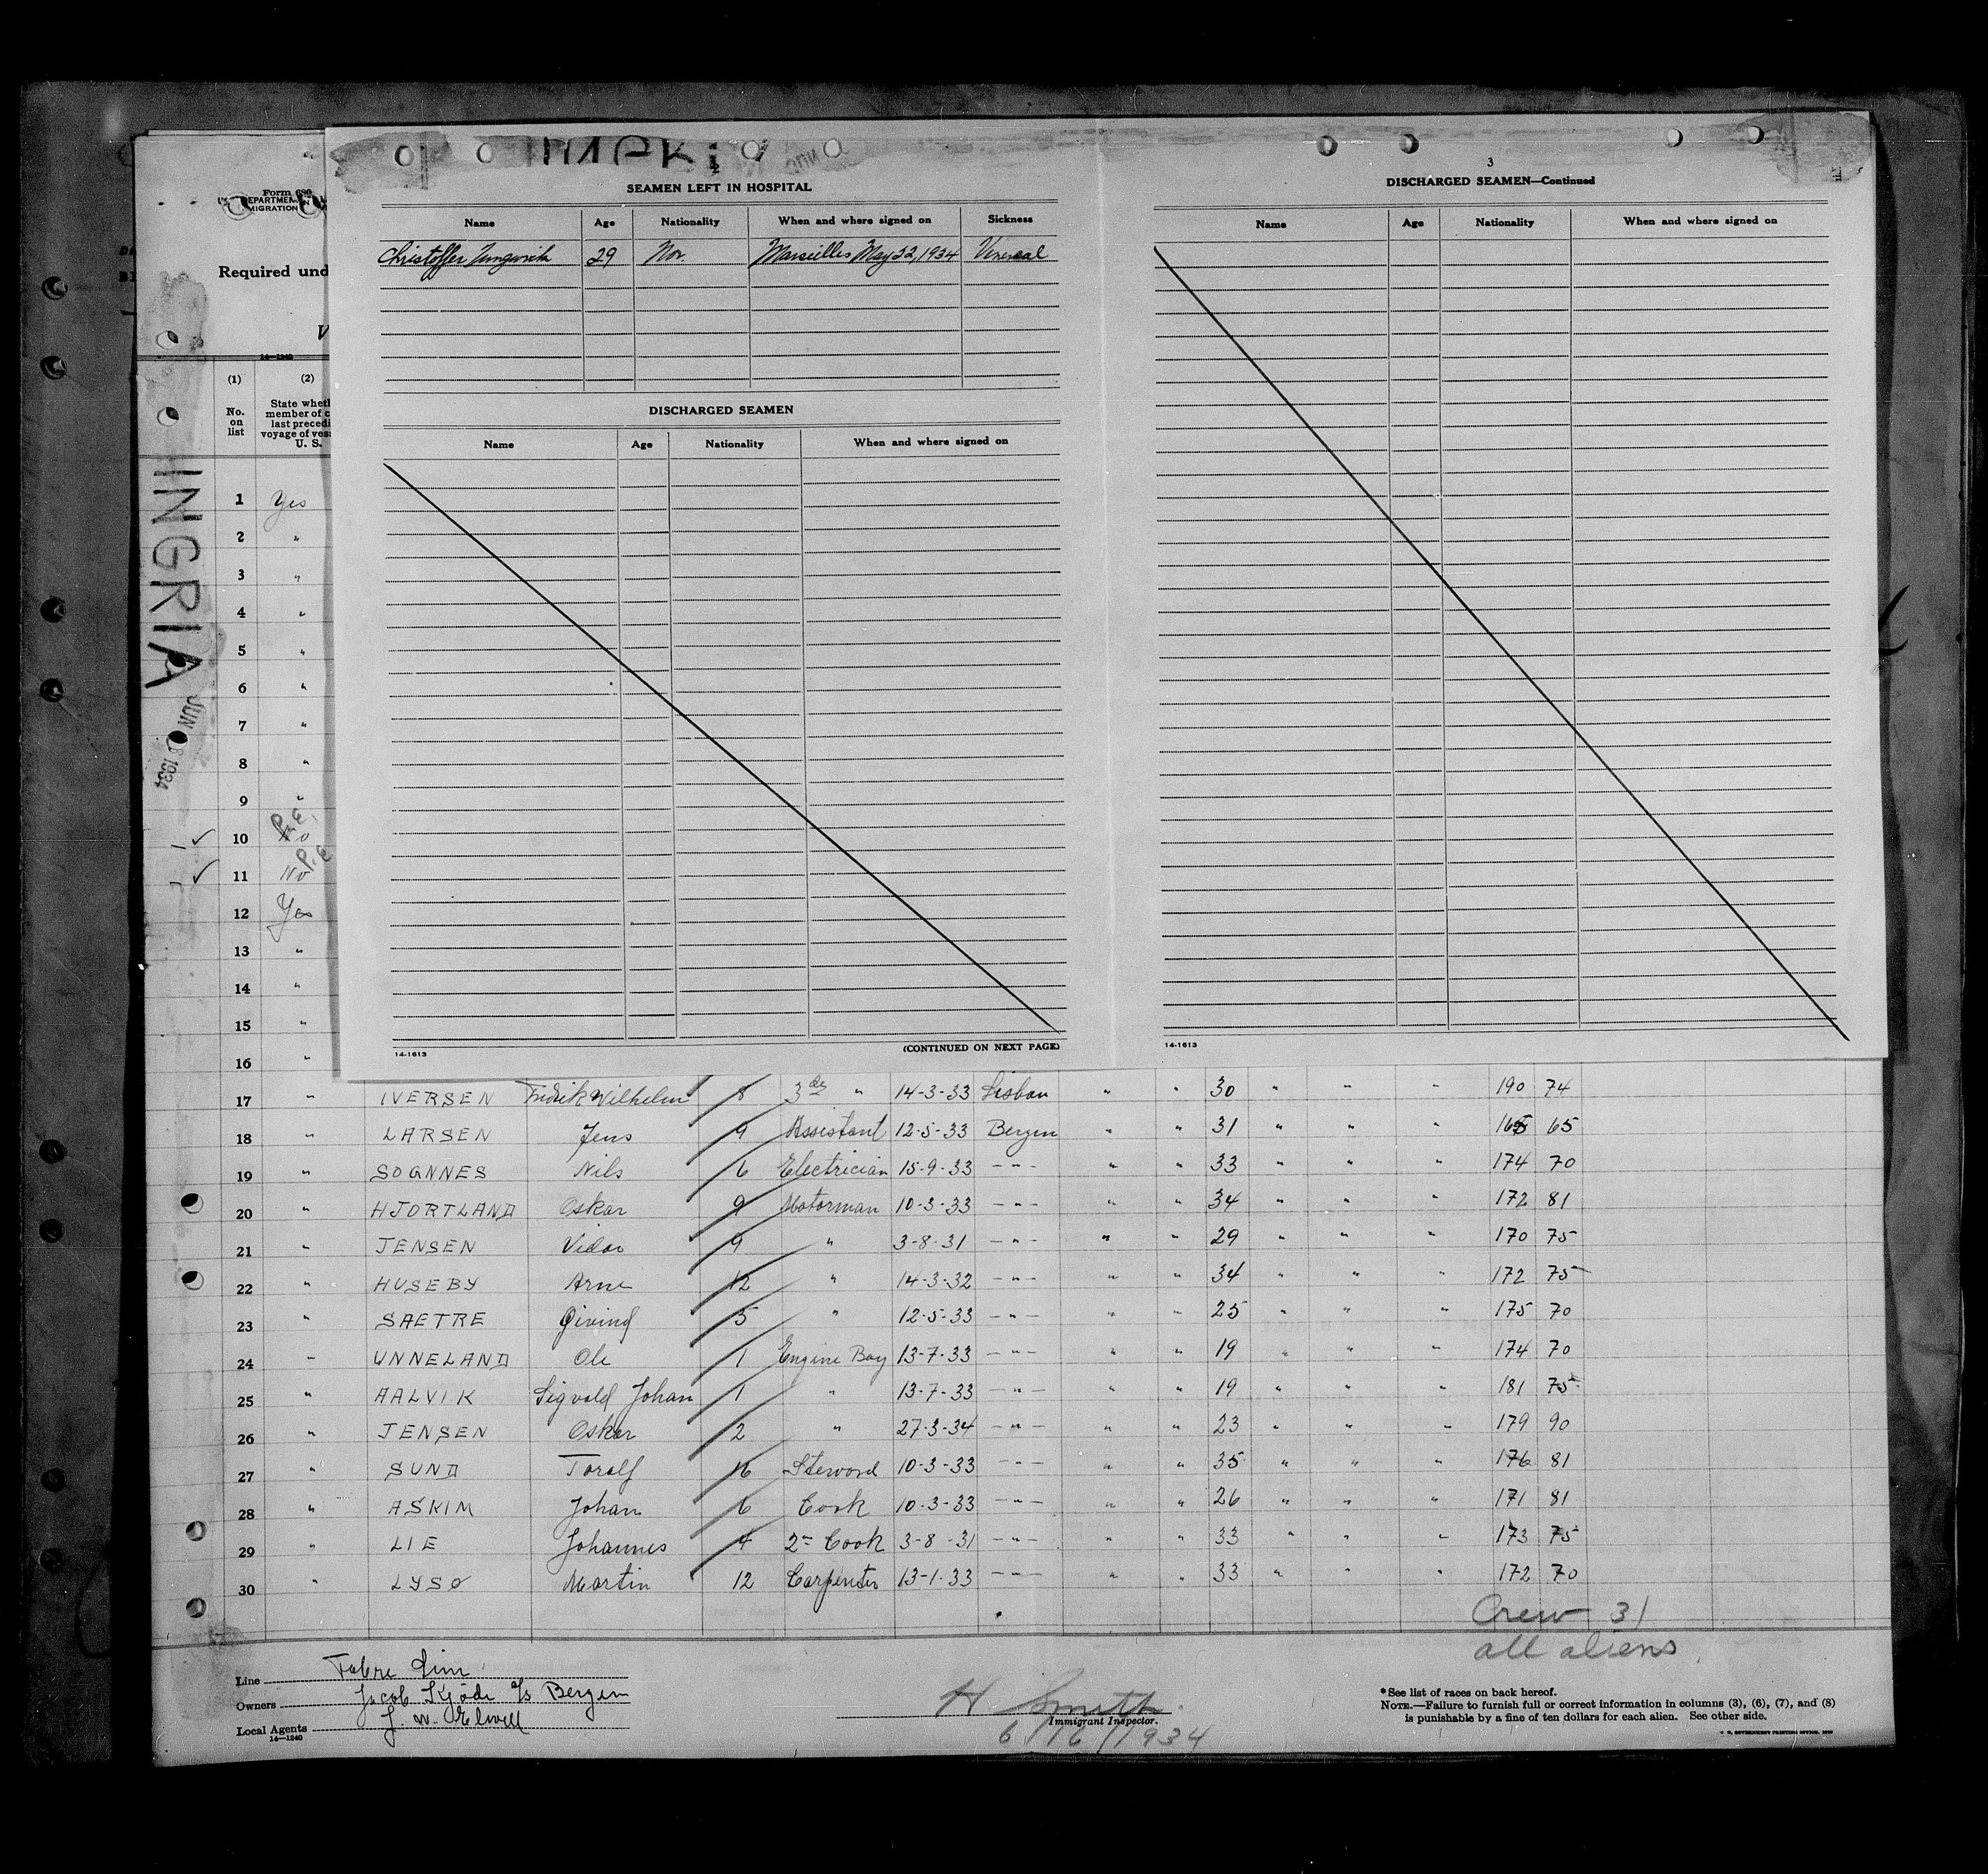 2
SEAMEN LEFT IN HOSPITAL
Name Age Nationality When and where signed on Sickness
Christoffer 29 Nor. Marseilles May 22, 1934 Venereal
DISCHARGED SEAMEN
Name Age Nationality When and where signed on
14-1613 (CONTINUED ON NEXT PAGE)
3
DISCHARGED SEAMEN—Continued
Name Age Nationality When and where signed on
14-1613
Form 680
Required und
14—1240
(1) (2)
No. on list
State wheth
member of c
last precedi
voyage of ves
U. S.
INGRIA
JUN 1934
1 Yes
2 "
3 "
4 "
5 "
6 "
7 "
8 "
9 "
10 No P.E.
11 No P.E
12 Yes
13 "
14 "
15 "
16 "
17 " IVERSEN Fridrik Wilhelm 8 3de " 14-3-33 Lisbon " " 30 " " " 190 74
18 " LARSEN Jens 9 Assistant 12-5-33 Bergen " " 31 " " " 165 65
19 " SOGNNES Nils 6 Electrician 15-9-33 -"- " " 33 " " " 174 70
20 " HJORTLAND Oskar 9 Motorman 10-3-33 -"- " " 34 " " " 172 81
21 " JENSEN Vidar 9 " 3-8-31 -"- " " 29 " " " 170 75
22 " HUSEBY Arne 12 " 14-3-32 -"- " " 34 " " " 172 75
23 " SAETRE Øivind 5 " 12-5-33 -"- " " 25 " " " 175 70
24 " UNNELAND Ole 1 Engine Boy 13-7-33 -"- " " 19 " " " 174 70
25 " AALVIK Sigvald Johan 1 " 13-7-33 -"- " " 19 " " " 181 75
26 " JENSEN Oskar 2 " 27-3-34 -"- " " 23 " " " 179 90
27 " SUND Toralf 16 Steward 10-3-33 -"- " " 35 " " " 176 81
28 " ASKIM Johan 6 Cook 10-3-33 -"- " " 26 " " " 171 81
29 " LIE Johannes 4 2n Cook 3-8-31 -"- " " 33 " " " 173 75
30 " LYSØ Martin 12 Carpenter 13-1-33 -"- " " 33 " " " 172 70
Crew 31
all aliens
Line Fabre Line
Owners Jacob Kjøde A/S Bergen
Local Agents J. W. Elwell
14—1240
H Smith
Immigrant Inspector.
6/16/1934
*See list of races on back hereof.
NOTE.—Failure to furnish full or correct information in columns (3), (6), (7), and (8)
is punishable by a fine of ten dollars for each alien. See other side.